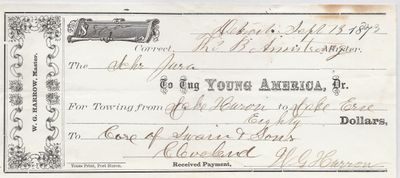 W. G. HARROW, Master.
$
Detroit, Sept 13 1872
Correct, Master.
The Schr Jura
To Tug YOUNG AMERICA, Dr.
For Towing from Lake Huron to Lake Erie
Eighty Dollars,
To Care of Swain & Sons
Cleveland
Received Payment, W G Harrow
Times Print, Port Huron.